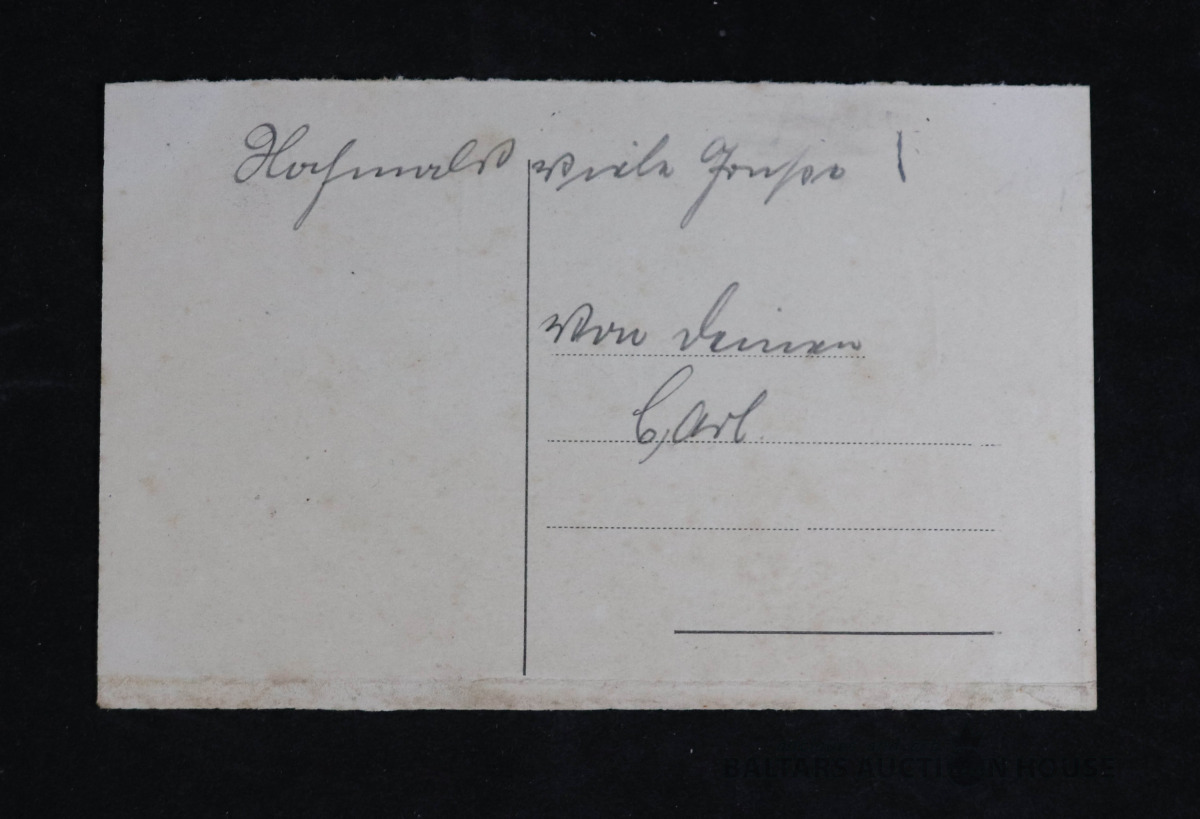 Nochmals viele Grüsse !
Von deinen
Carl.
BALTARS AUCTION HOUSE